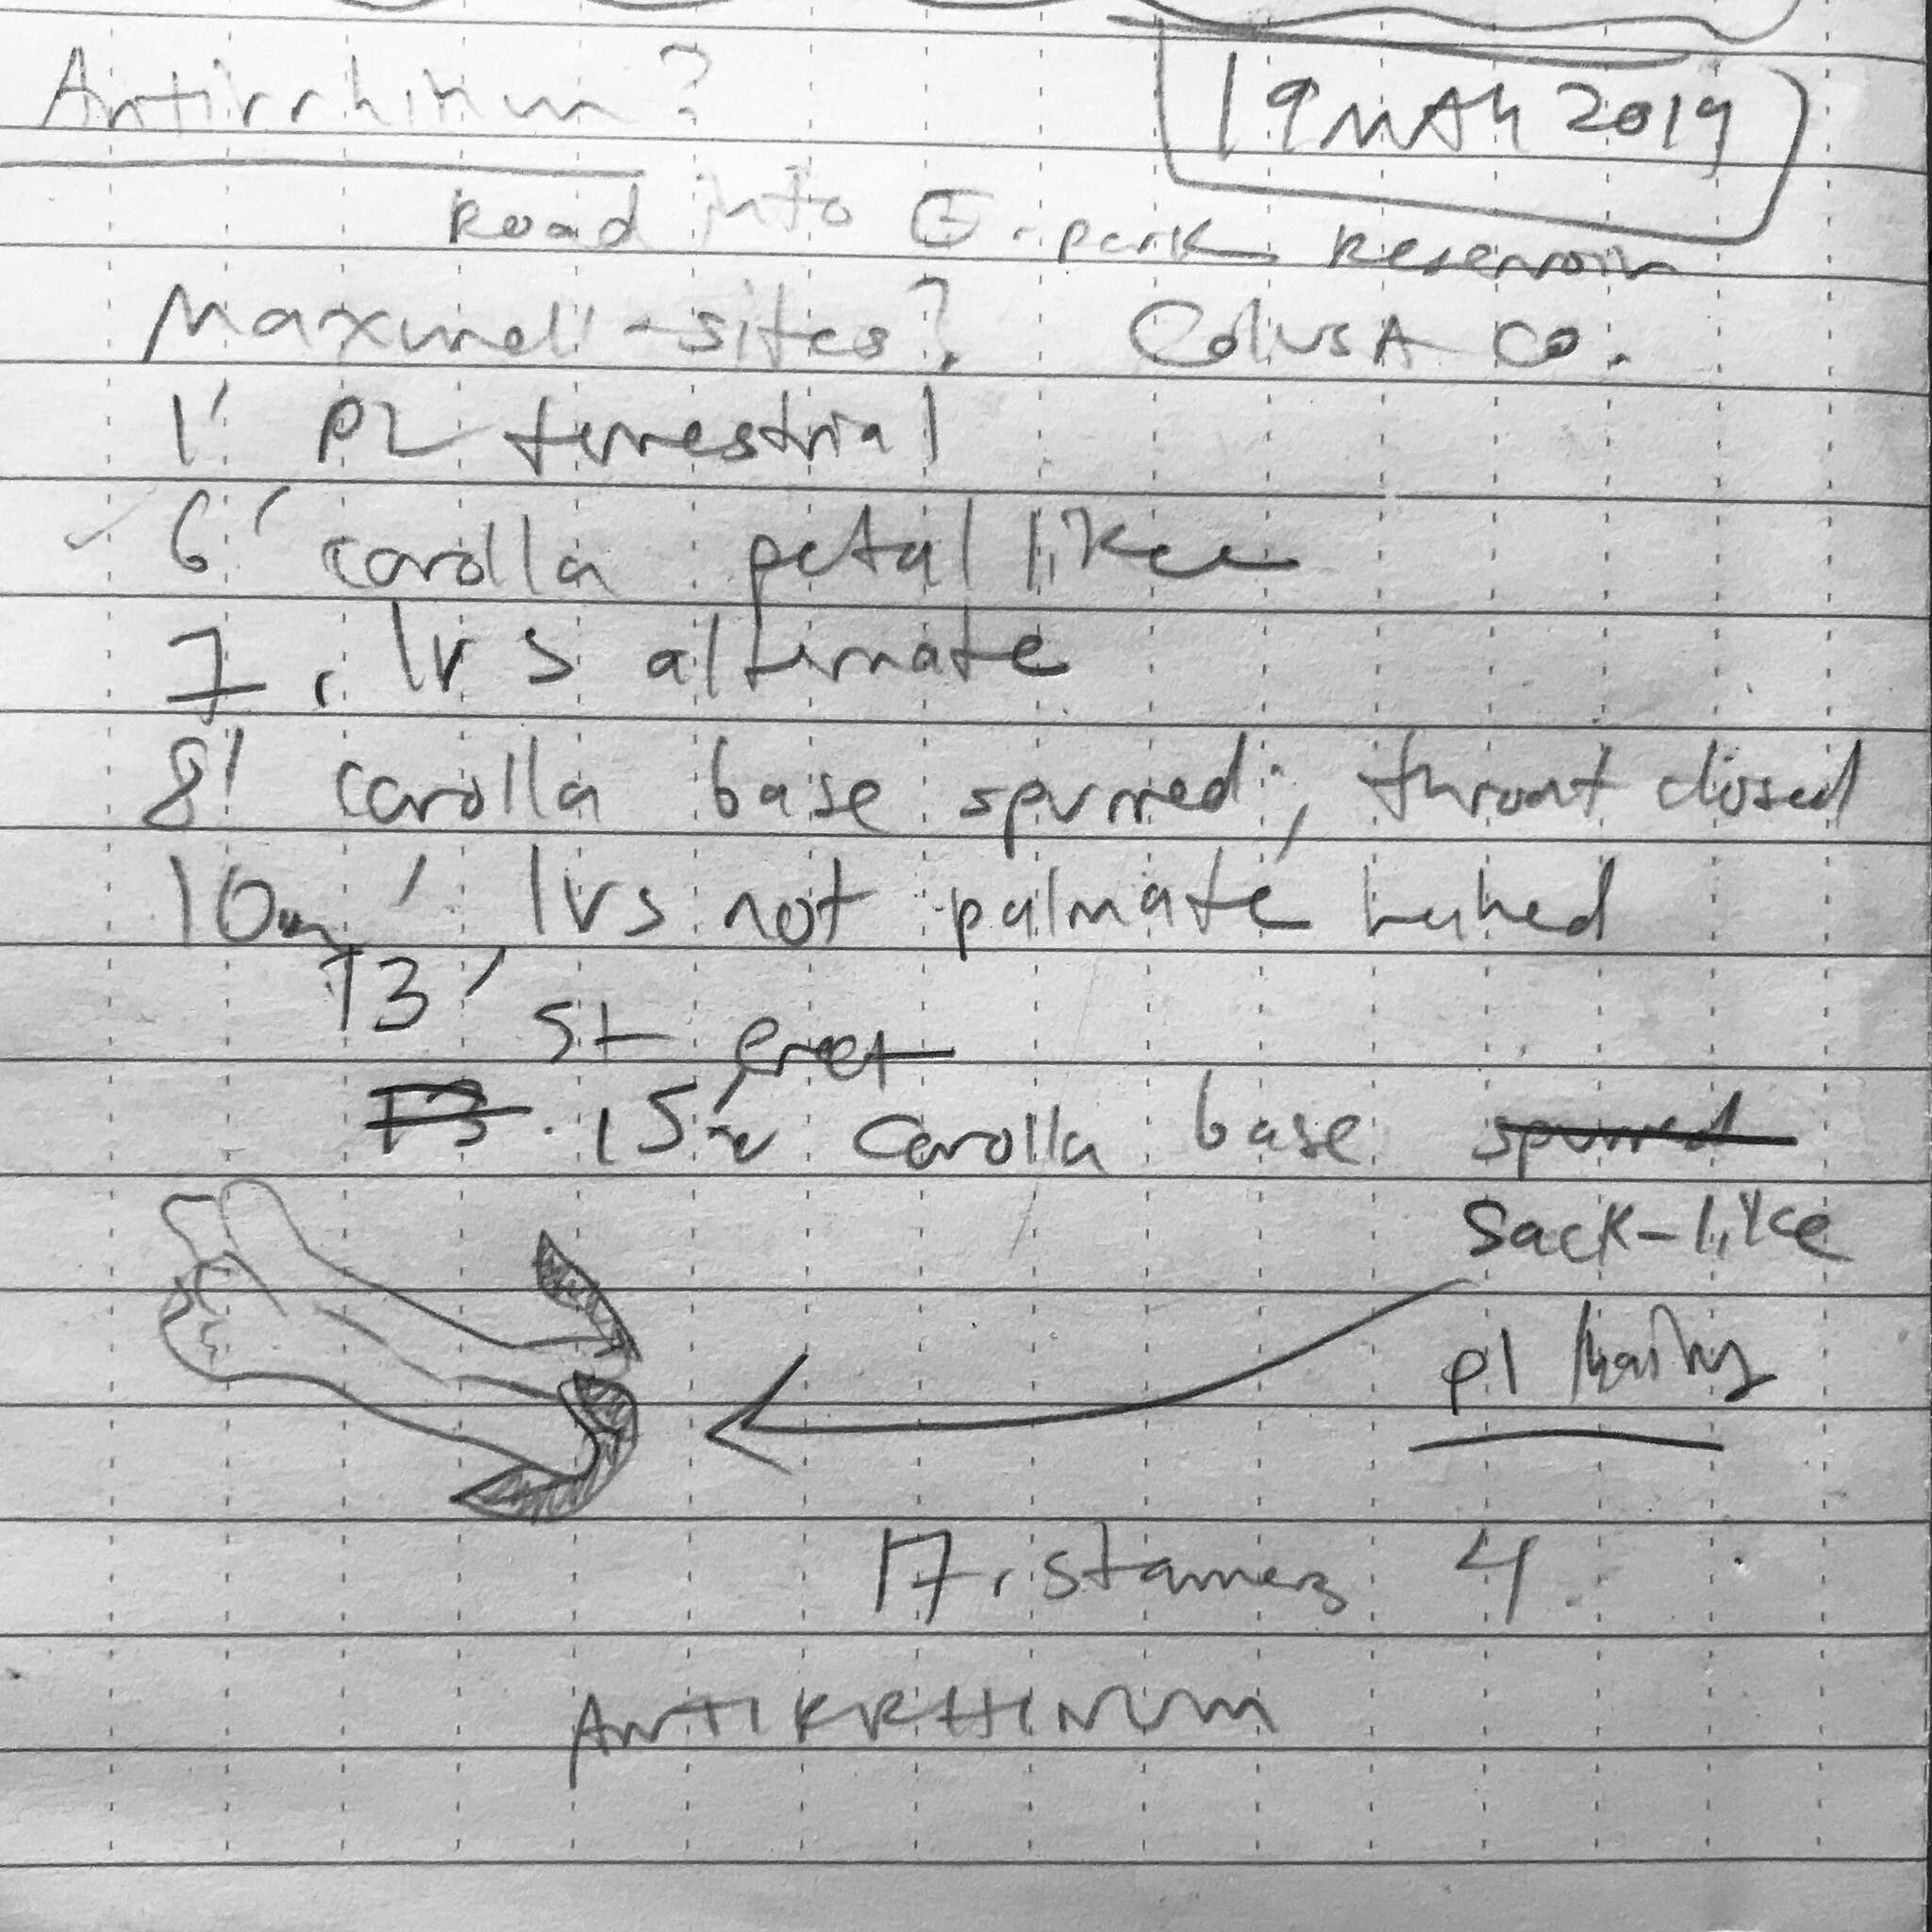 Antirrhinum?
19 MAY 2019
Road into E. park Reservoir
Maxwell - sites? Colusa Co.
1' PL terrestrial
6' carolla petal like
7, lvs alternate
8' carolla base spurred; throat closed
10' lvs not palmate
13' St erect
13. 15' carolla base spurred
Sack-like
pl hairy
17, stamens 4
ANTIRRHINUM